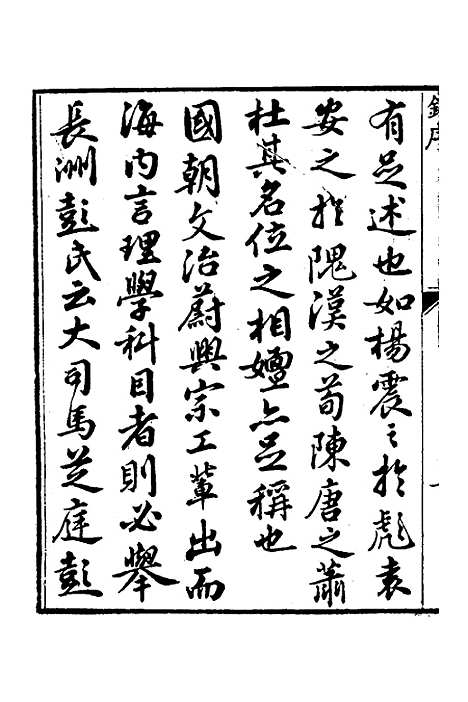 有足述也如楊震之於彪袁
安之於隗漢之荀陳唐之蕭
杜其名位之相嬗亦足稱也
國朝文治蔚興宗工輩出而
海內言理學科目者則必舉
長洲彭氏云大司馬芝庭彭